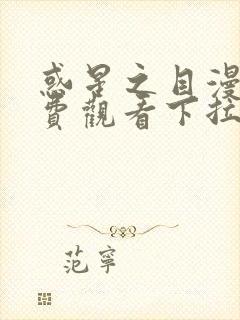 惑星之目漫
費觀看下拉
范寧